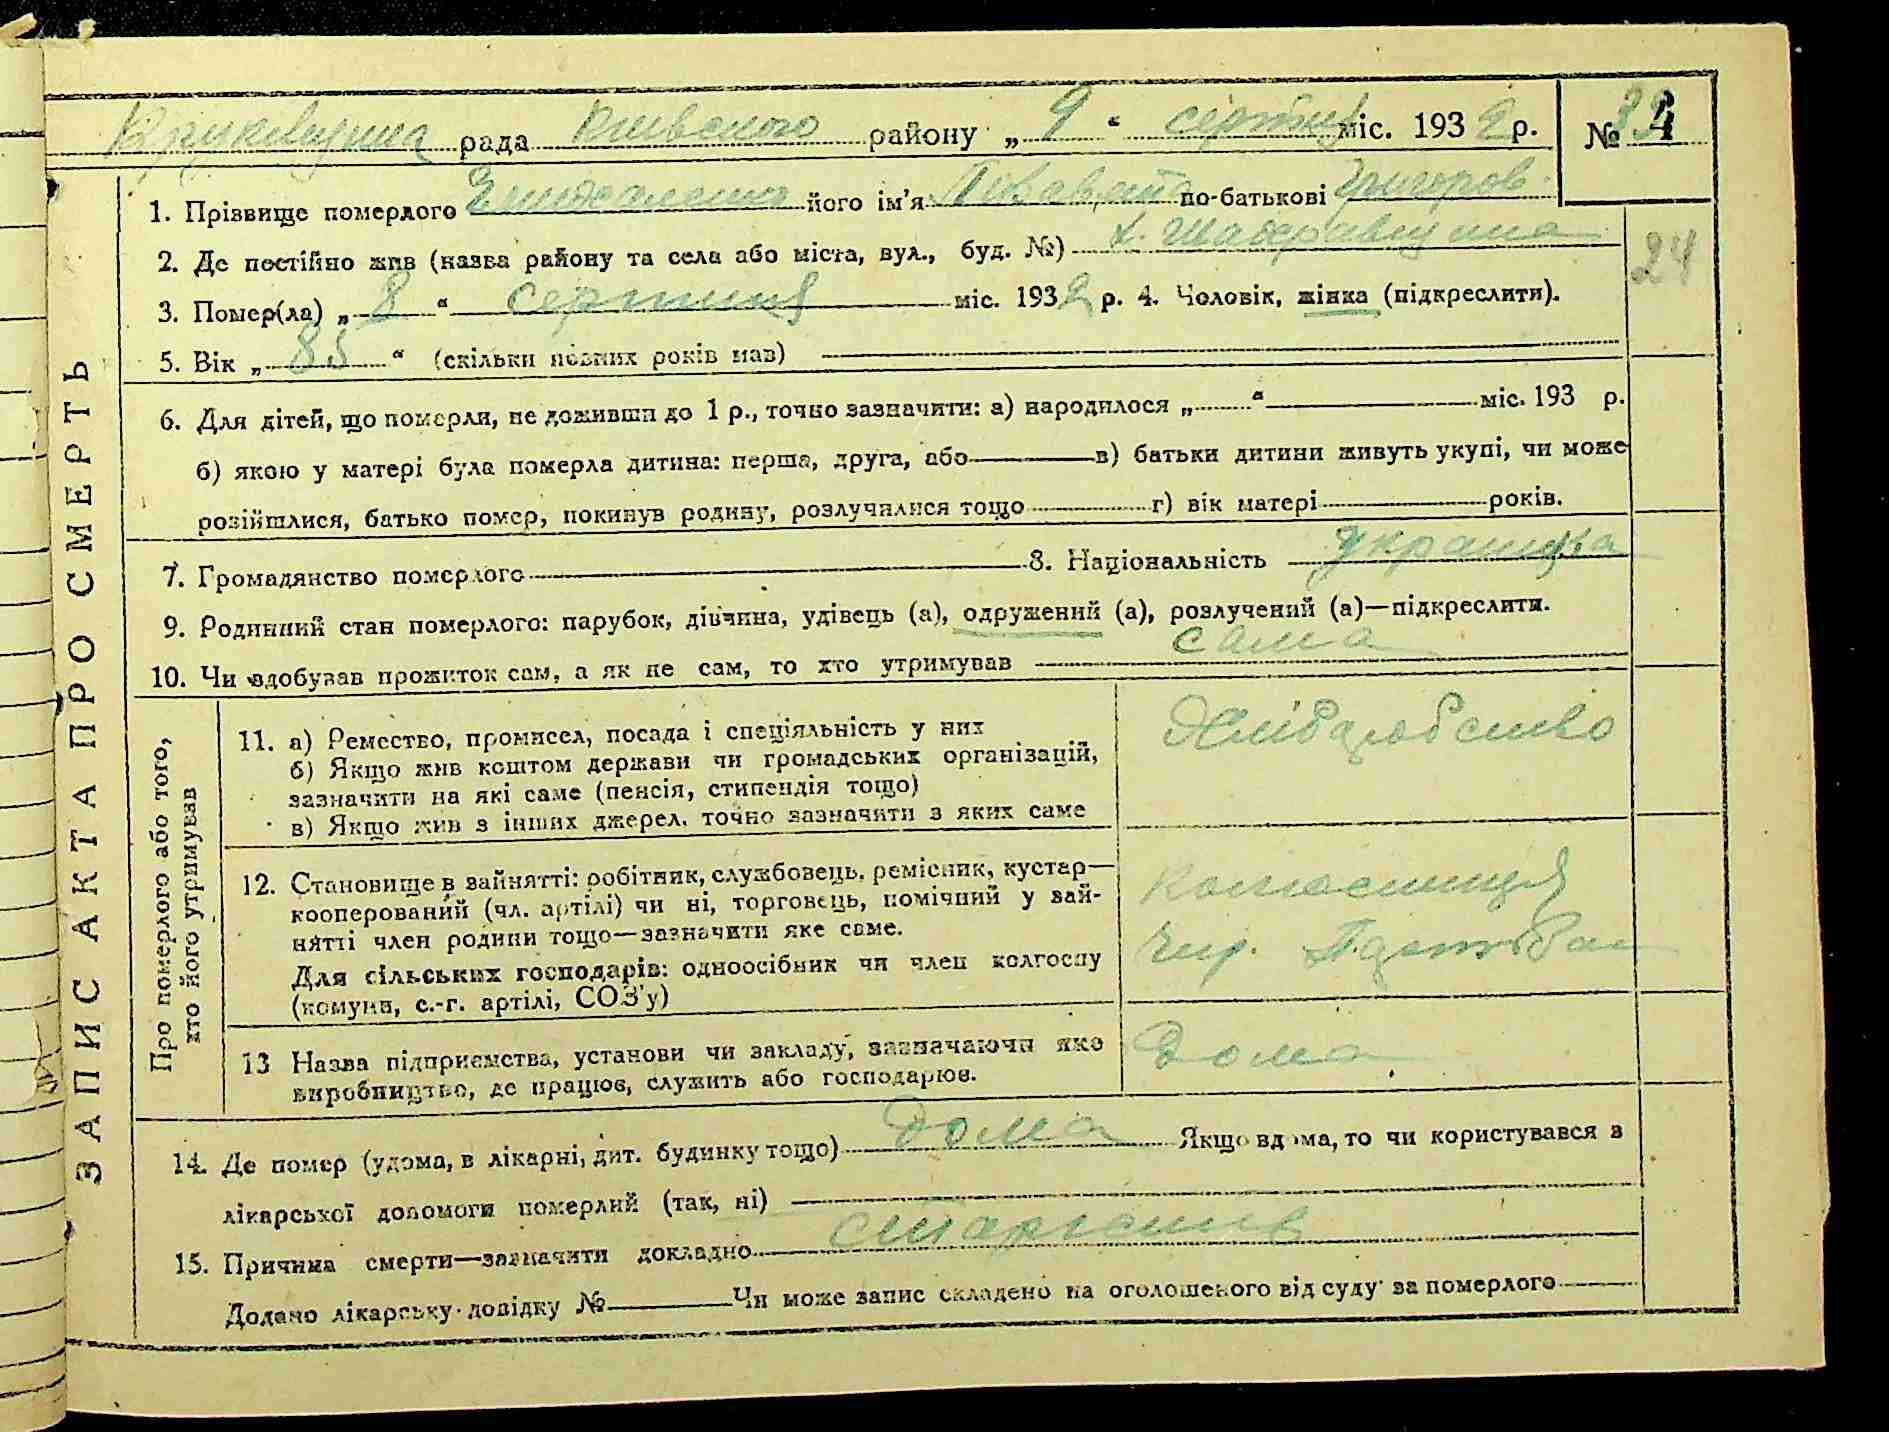 рада Київського району „ 9 “ серпня міс. 1932 р. № 4
1. Прізвище померлого його ім'я по-батькові Григоров.
24
2. Де постійно жив (назва району та села або міста, вул., буд. №) х.
3. Помер(ла) „ 8 “ серпня міс. 1932 р. 4. Чоловік, жінка (підкреслити).
5. Вік „ 85 “ (скільки повних років мав)
6. Для дітей, що померли, не доживши до 1 р., точно зазначити: а) народилося „ “ міс. 193 р.
б) якою у матері була померла дитина: перша, друга, або в) батьки дитини живуть укупі, чи може
розійшлися, батько помер, покинув родину, розлучилися тощо г) вік матері років.
7. Громадянство померлого 8. Національність українка
9. Родинний стан померлого: парубок, дівчина, удівець (а), одружений (а), розлучений (а)—підкреслити.
10. Чи здобував прожиток сам, а як не сам, то хто утримував сама
ЗАПИС АКТА ПРО СМЕРТЬ
Про померлого або того,
хто його утримував
11. а) Ремество, промисел, посада і спеціяльність у них
б) Якщо жив коштом держави чи громадських організацій,
зазначити на які саме (пенсія, стипендія тощо)
в) Якщо жив з інших джерел, точно зазначити з яких саме
12. Становище в зайнятті: робітник, службовець, ремісник, кустар—
кооперований (чл. артілі) чи ні, торговець, помічний у зай-
нятті член родини тощо—зазначити яке саме.
Для сільських господарів: одноосібник чи член колгоспу
(комуни, с.-г. артілі, СОЗ'у)
13 Назва підприємства, установи чи закладу, зазначаючи яко
виробництво, де працює, служить або господарює.
Дома
14. Де помер (удома, в лікарні, дит. будинку тощо) Дома Якщо вдома, то чи користувався з
лікарської допомоги померлий (так, ні)
15. Причина смерти—зазначити докладно
Додано лікарську довідку № Чи може запис складено на оголошеного від суду за померлого